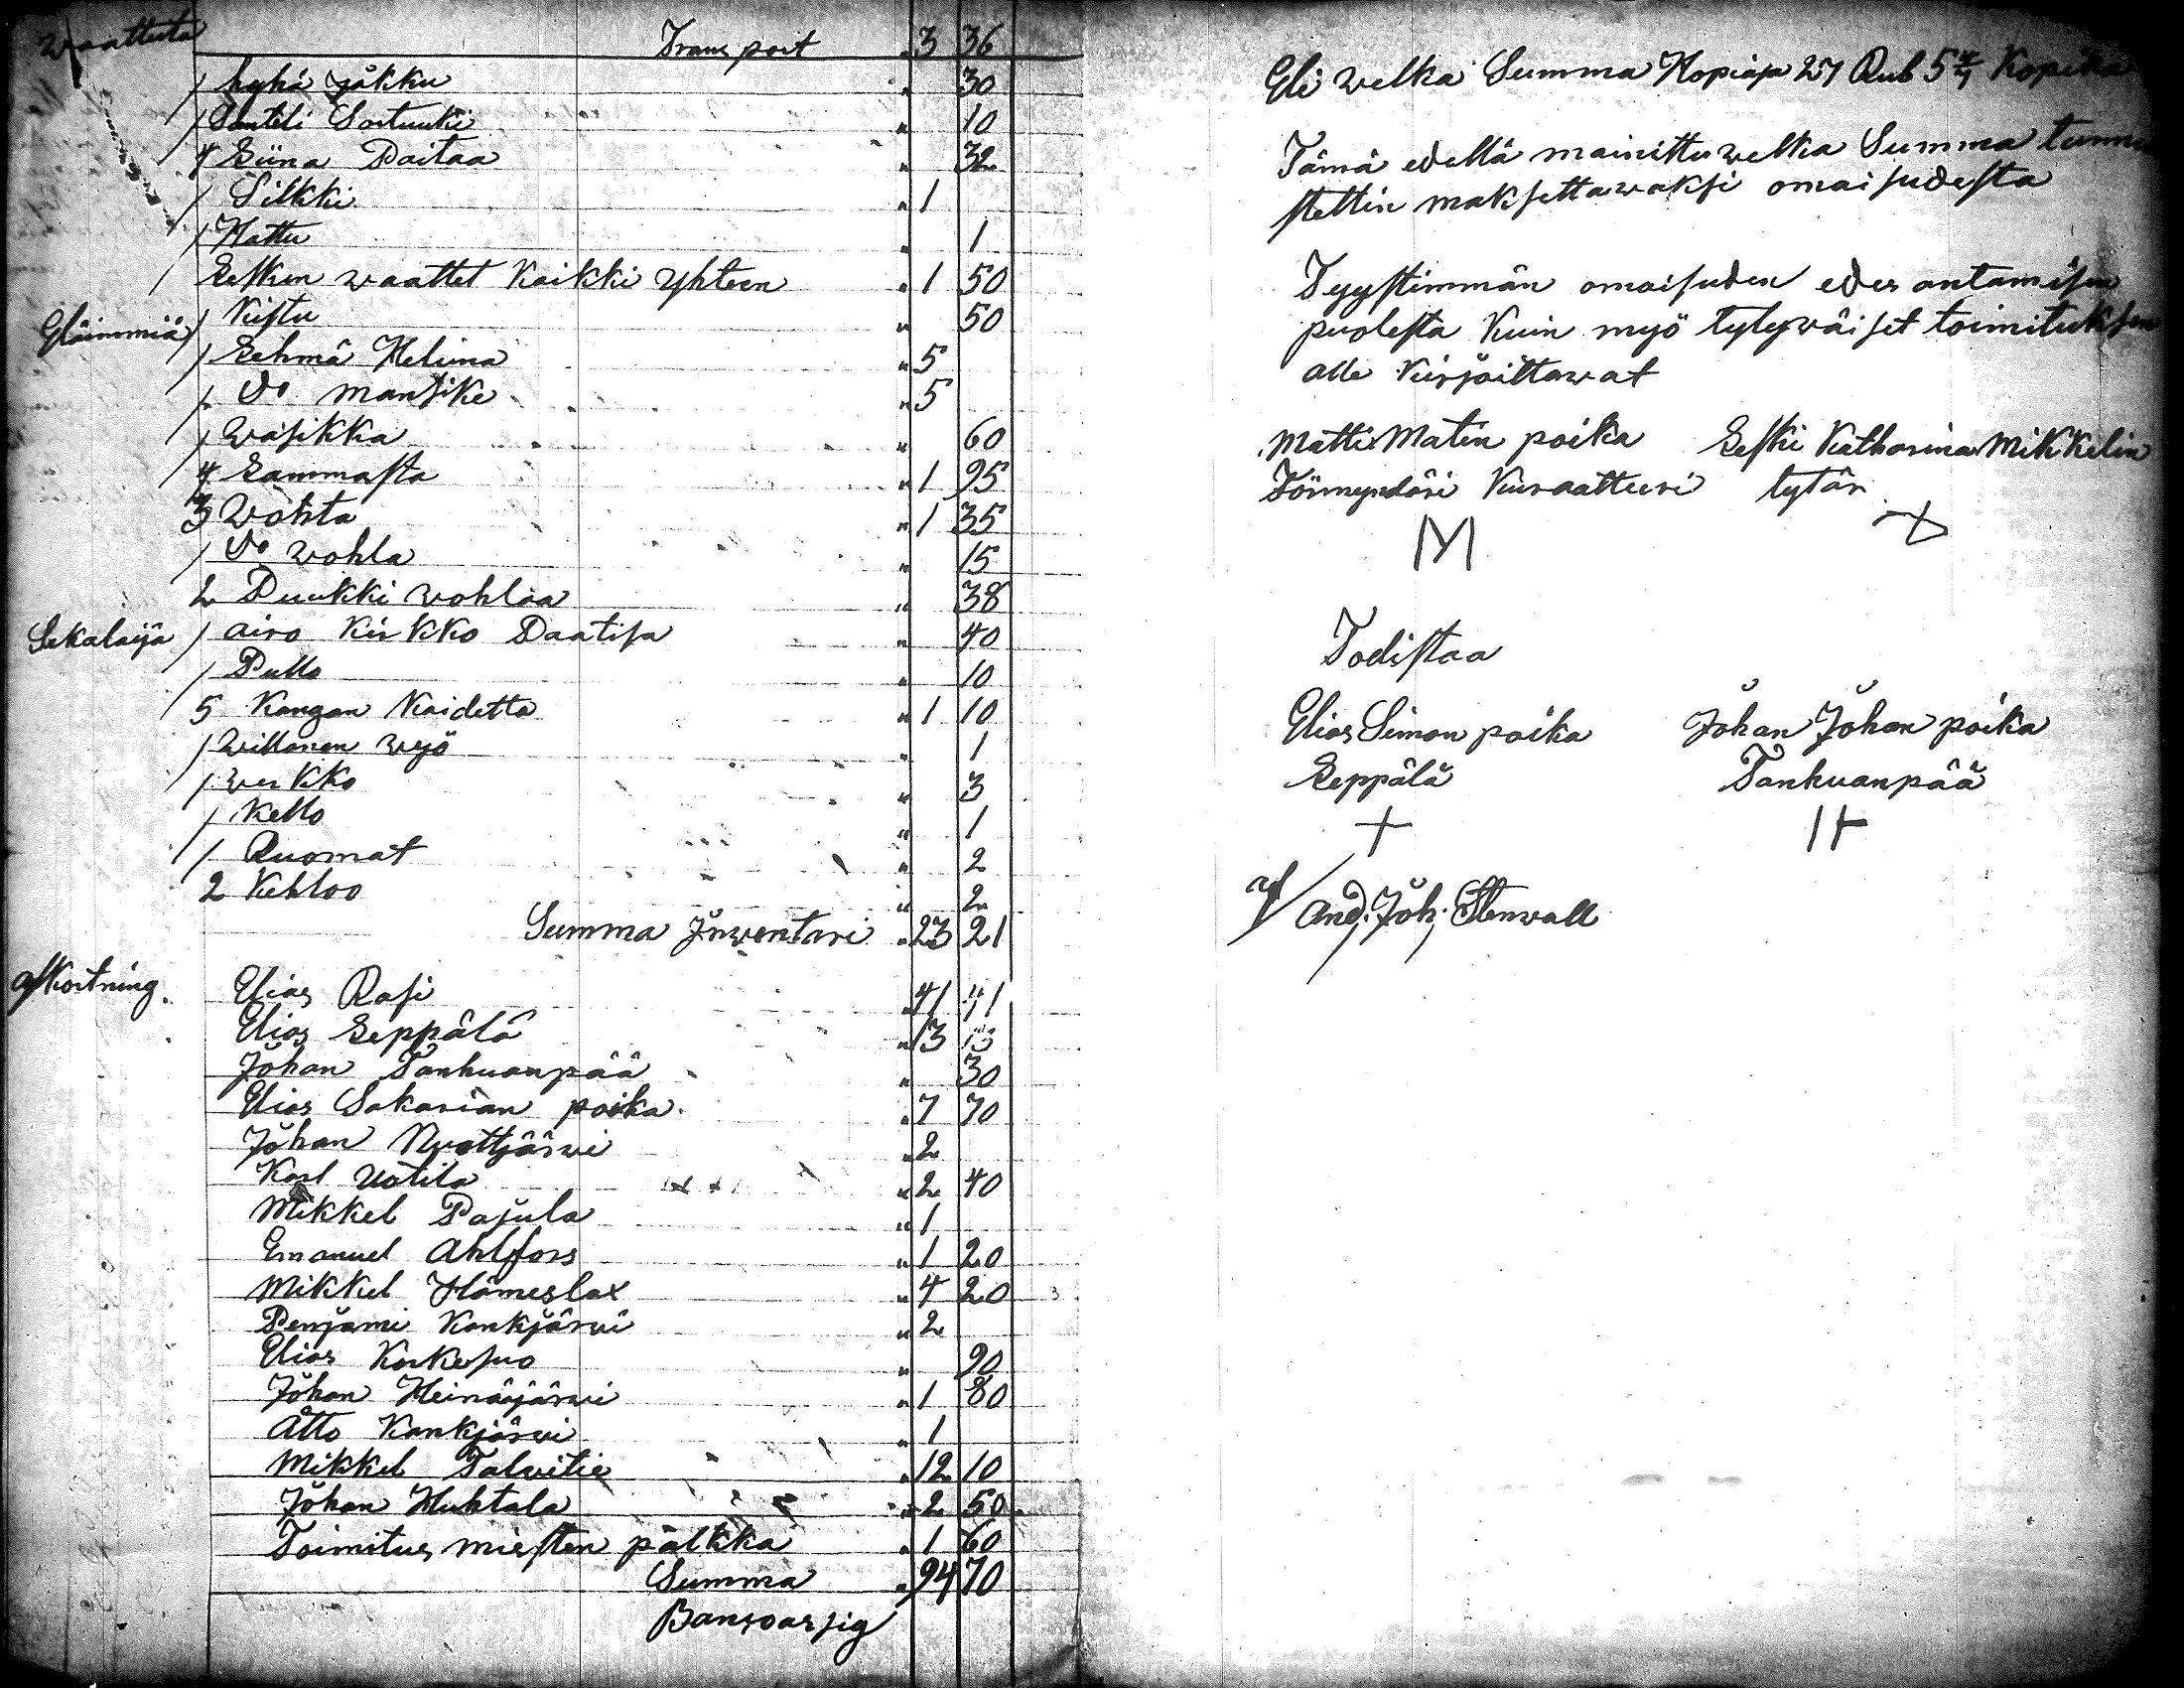 Waatteita
Transport " 3 36
1 lyhä jåkku " 30
1 Santeli Sortuuki " 10
4 Siina Paitaa " 32
1 Silkki " 1
1 Hattu " 1
Lesken waattet Kaikki Yhteen " 1 50
1 Kistu " 50
Eläimmiä
1 Lehmä Heluna " 5
1 Do mansike " 5
1 Wasikka " 60
4 Lammasta " 1 95
3 Wohta " 1 35
1 Do wohla " 15
2 Puukki wohlaa " 38
Sekalaija
1 airo Kirkko Paatisa " 40
1 Pullo " 10
5 Kangan Kaidetta " 1 10
1 Willanen wyö " 1
1 Werkko " 3
1 Kello " 1
1 Ruomat " 2
2 Kehloo " 2
Summa Inwentari " 23 21
afkortning.
Elias Rasi " 41 41
Elias Seppälä " 13 13
Johan Tanhuanpää " 30
Elias Sakarian poika " 7 70
Johan Nyattjärwi " 2
Karl Uotila " 2 40
Mikkel Pajula " 1
Emanuel Ahlfors " 1 20
Mikkel Hömeslax " 4 20
Penjami Kankjärwi " 2
Elias Korkesuo " 90
Johan Heinäjärwi " 1 80
Åtto Kankjärwi " 1
Mikkel Talwitie " 12 10
Johan Huhtala " 2 50
Toimitus miesten palkka " 1 60
Summa " 94 70
Eli welka Summa Hopiaja 27 Rub 5 4/7 Kopeka
Tämä edellä mainittu welka Summa tunnu
stettin maksettawaksi omaisudesta
Tyystimmän omaisuden edes antamisen
puolesta Kuin myö tytywäiset toimituksen
alle Kirjoittawat
Matti Matin poika Leski Katharina Mikkelin
Förmyndäri Kuraatteeri tytär
M
Todistaa
Elias Simon poika Johan Johan poika
Seppälä Tanhuanpää
+ 1+
And: Joh: Stenwall